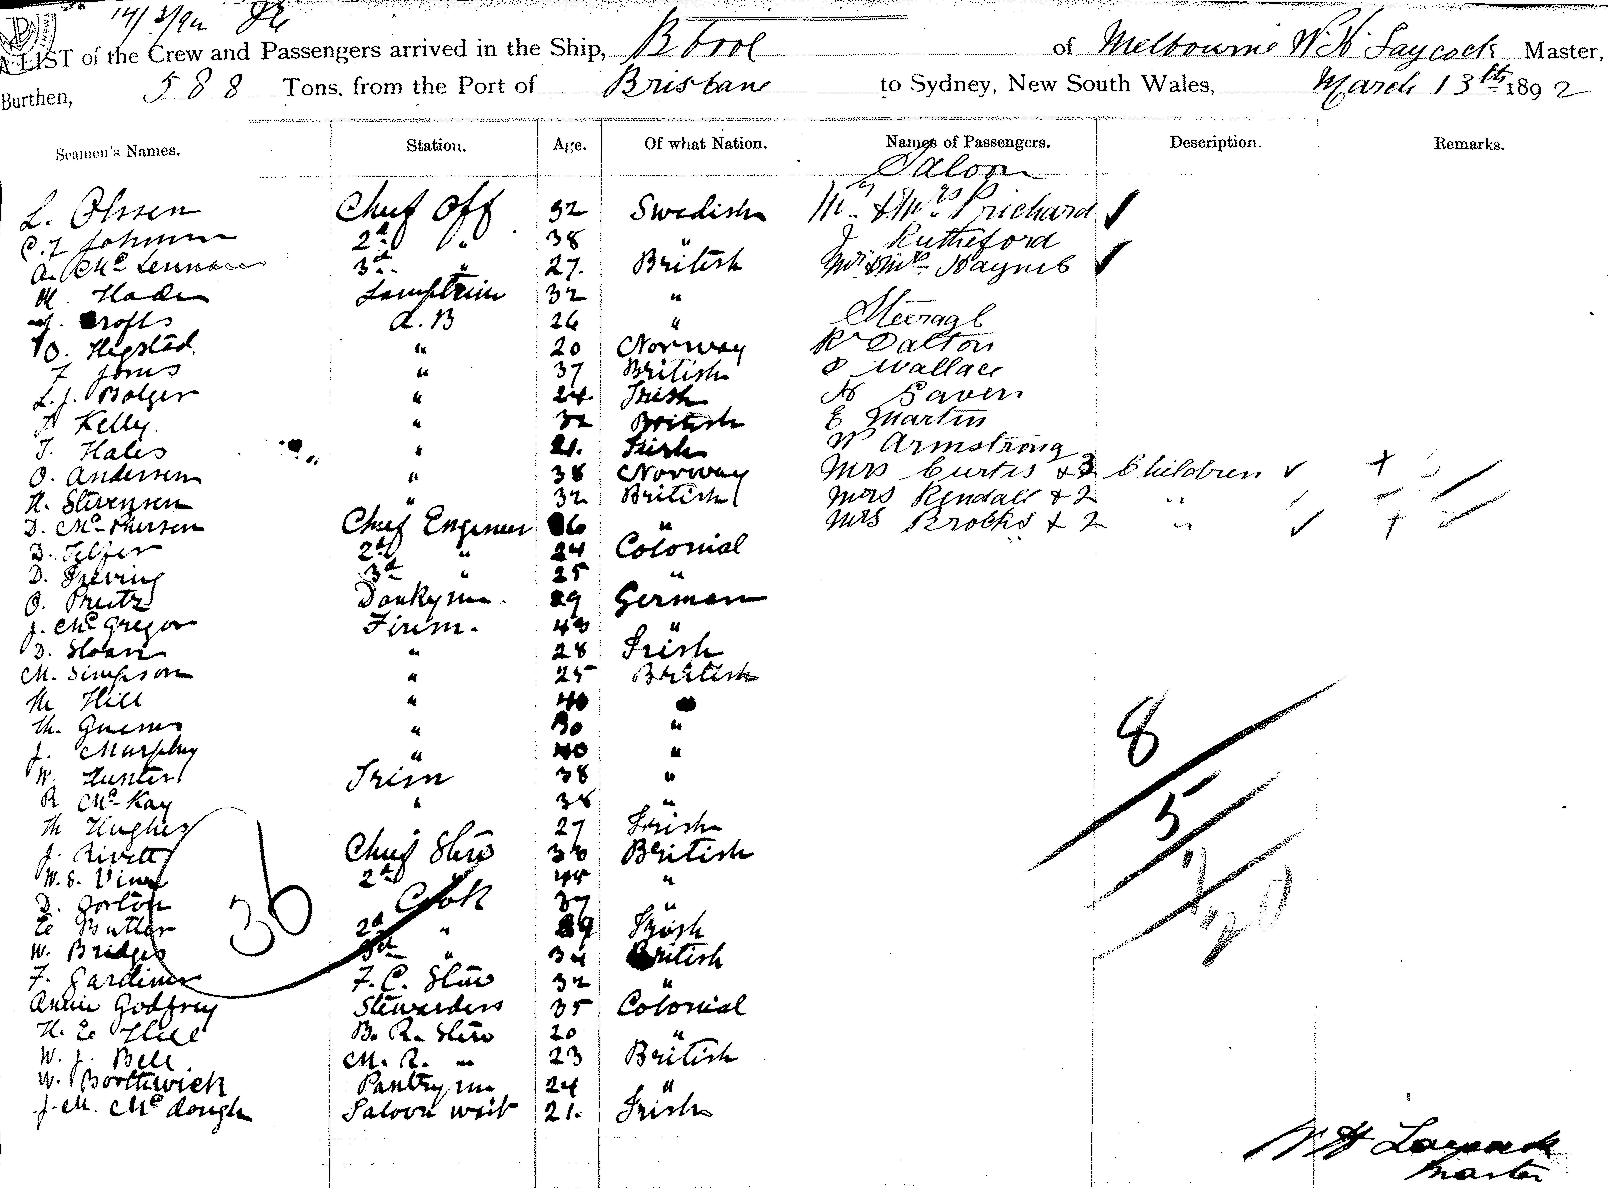 14/3/92
A LIST of the Crew and Passengers arrived in the Ship, of Melbourne W. H. Laycock Master,
Burthen, 588 Tons, from the Port of Brisbane to Sydney, New South Wales, March 13th 1892
Seamen's Names. Station. Age. Of what Nation. Names of Passengers. Description. Remarks.
Saloon
L. Olssen Chief Off 32 Swedish Mr & Mrs Prichard
C. J. Johnson 2d " 38 " J Rutherford
A. McLennan 3rd " 27. British Mr & Mrs Haynes
M. Lamptrim 32 "
Crofts A.B 26 " Steerage
O. Hegstad. " 20 Norway R Dalton
F Jones " 37 British Wallace
L. J. Bolger " 24 Irish
Kelly. " 32 British E Martin
T. Hales " 21. Irish W Armstrong
O. Andersen " 38 Norway Mrs Curtis & 3 Children
H. Stevensen " 32 British Mrs Kendall & 2 "
D. McPherson Chief Engineer 36 " Mrs Brooks & 2 "
D. Telfer 2d " 24 Colonial
D. 3d " 25 "
O. Preitz Donkeymn. 29 German
J. McGregor Firem. 43 "
D. Sloan " 28 Irish
M. Simpson " 25 British
M Hill " 40 "
Th. " 30 "
J. Murphy " 40 "
W. Hunter Trim 38 "
R McKay " 38 "
Th Hughes " 27 Irish
J. Rivett Chief Stwd 38 British
W. S. Vine 2d " 44 "
D. Gorton Cook 37 "
E Butler 2d " 29 Irish
W. Bridges 3rd " 34 British
F. Gardiner F. C. Stwd 32 "
Annie Godfrey Stewardess 35 Colonial
H. E. Hill B. R. Stwd 20 "
W. J. Bell M. R. " 23 British
W. Borthwick Pantrymn 24 "
J. M. McDonagh Saloon wait 21. Irish
36
8
5
7
20
W H Laycock
Master